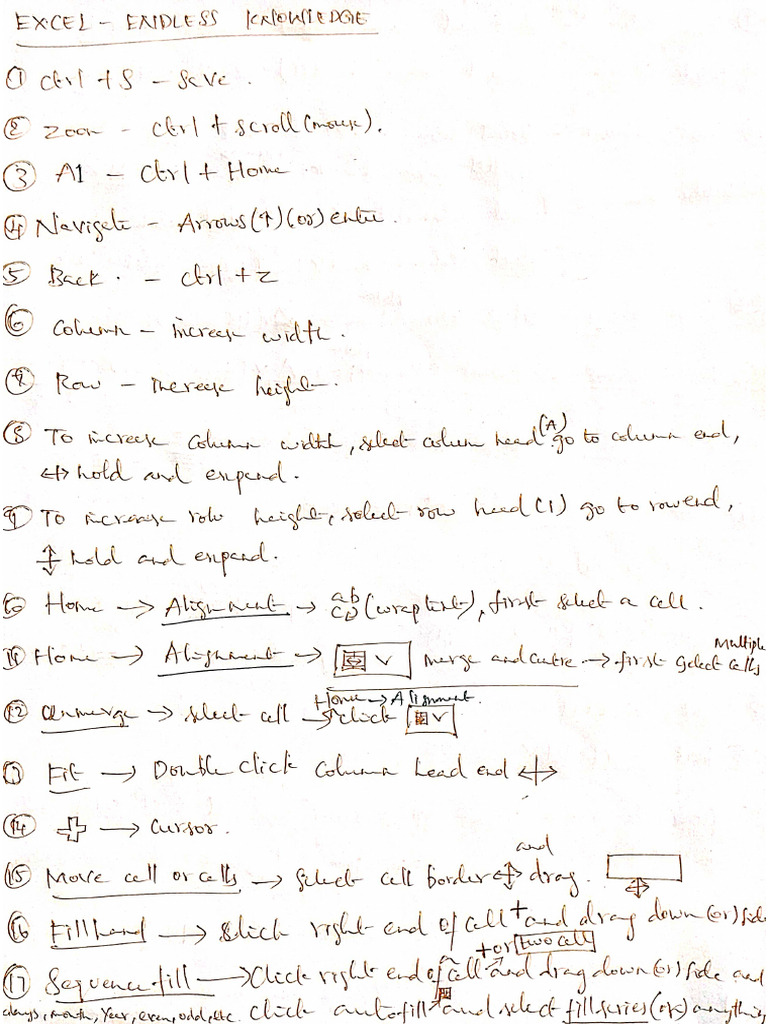 EXCEL - ENDLESS KNOWLEDGE
① Ctrl + S - Save.
② Zoom - Ctrl + scroll (mouse).
③ A1 - Ctrl + Home
④ Navigate - Arrows (↑) (or) enter.
⑤ Back. - Ctrl + Z
⑥ Column - increase width.
⑦ Row - increase height.
⑧ To increase column width, select column head (A) go to column end,
↔ hold and expand.
⑨ To increase row height, select row head (1) go to row end,
↕ hold and expand.
⑩ Home → Alignment → ab (wrap text), first select a cell.
⑪ Home → Alignment → merge and centre → first select Multiple cells
⑫ Unmerge → select cell → Home → Alignment. click
⑬ Fit → Double click column head end ↔
⑭ → cursor.
⑮ Move cell or cells → Select cell border and drag.
⑯ Fill hand → Click right end of cell + and drag down (or) side
⑰ Sequence fill → Click right end of cell + or two cell and drag down (or) side and
days, month, year, even, odd, etc. click autofill and select fill series (or) anything